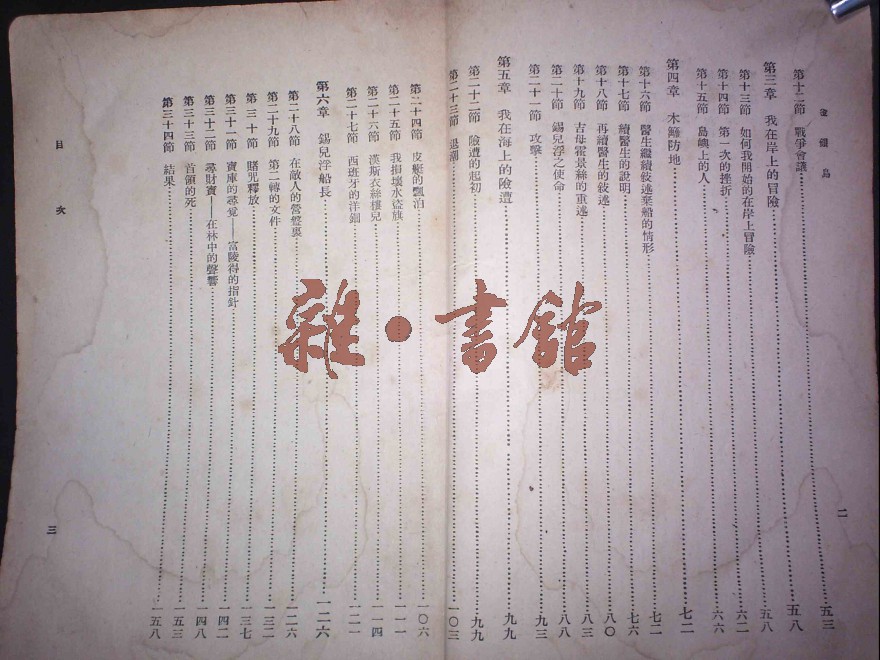 島
二
第十二節 戰爭會議 五三
第三章 我在岸上的冒險 五八
第十三節 如何我開始的在岸上冒險 五八
第十四節 第一次的挫折 六二
第十五節 島嶼上的人 六六
第四章 木籬防地 七二
第十六節 醫生繼續敍述棄船的情形 七二
第十七節 續醫生的說明 七六
第十八節 再續醫生的敍述 八〇
第十九節 吉母霍景絲的重述 八三
第二十節 錫兒浮之使命 八八
第二十一節 攻擊 九三
第五章 我在海上的險遭 九九
第二十二節 險遭的起初 九九
第二十三節 退潮 一〇三
第二十四節 皮艇的飄泊 一〇六
第二十五節 我損壞水盜旗 一一一
第二十六節 漢斯衣絲樓兒 一一四
第二十七節 西班牙的洋鈿 一二一
第六章 錫兒浮船長 一二六
第二十八節 在敵人的營盤裏 一二六
第二十九節 第二轉的文件 一三二
第三十節 賭咒釋放 一三七
第三十一節 寶庫的尋覓——富陵得的指針 一四二
第三十二節 尋財寶——在林中的聲響 一四八
第三十三節 首領的死 一五三
第三十四節 結果 一五八
目次
三
雜·書館